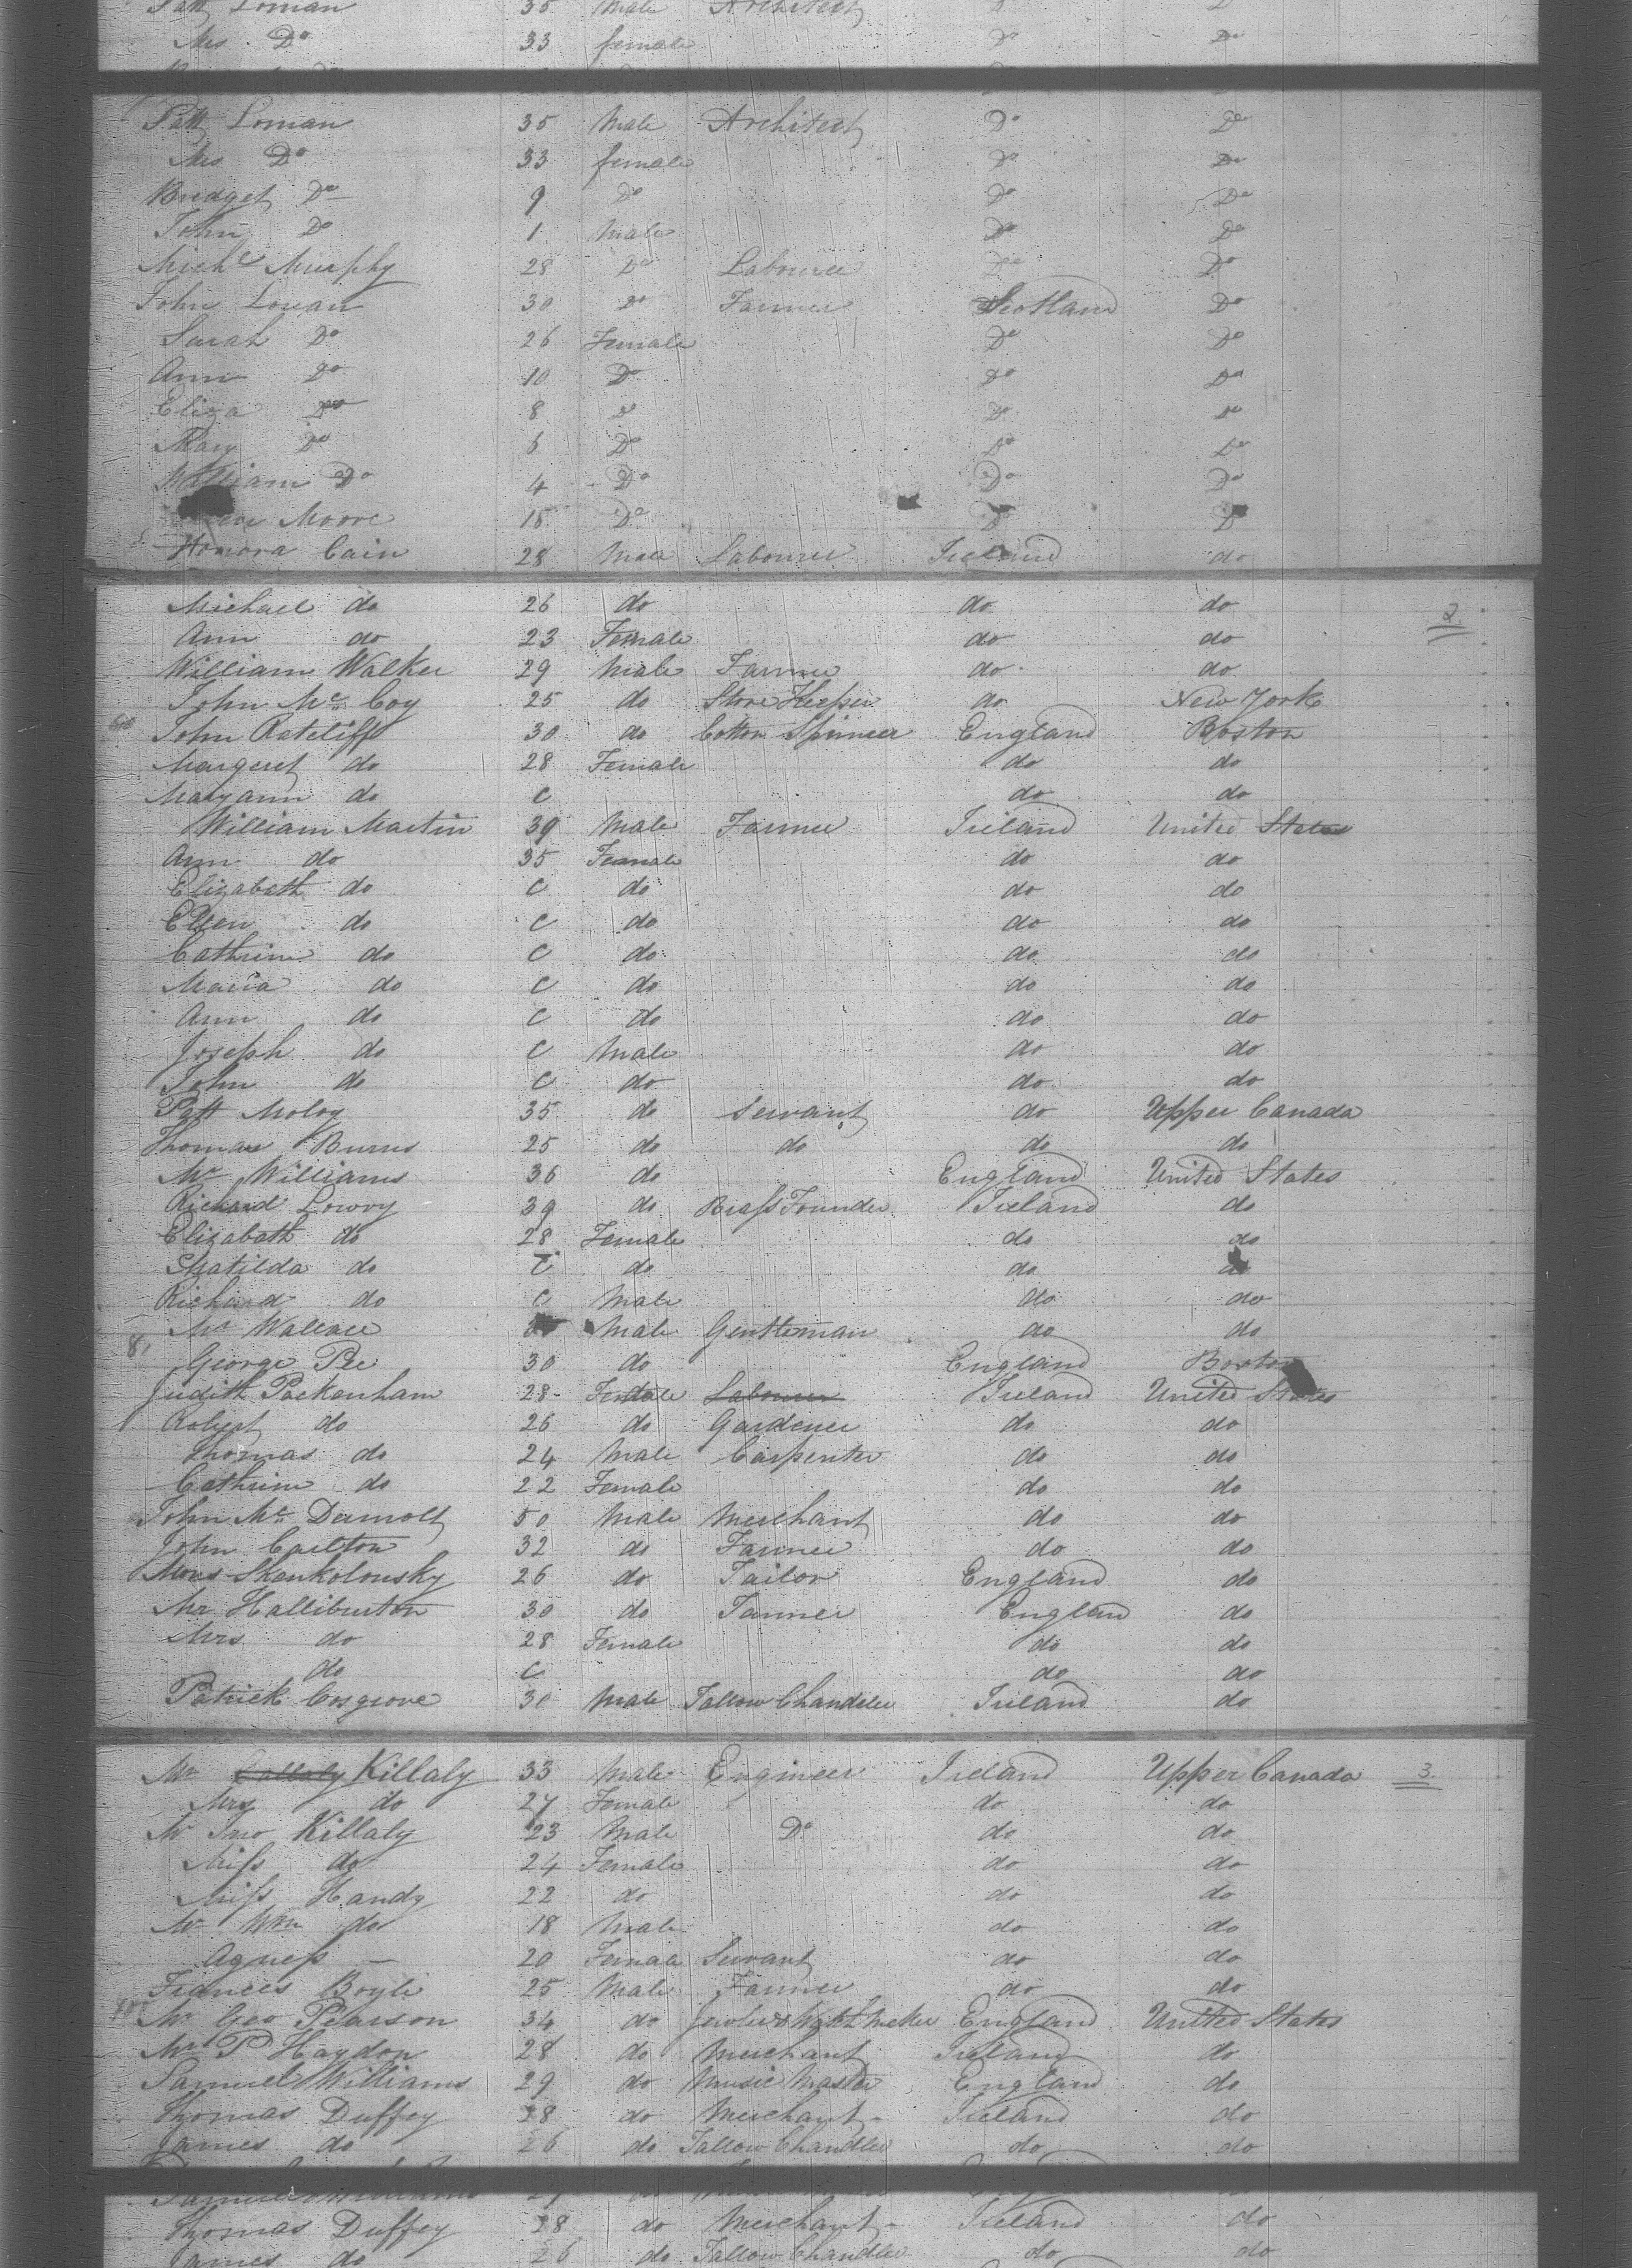 Patt Loman 35 Male Architect Do Do
Mrs Do 33 female Do Do
Patt Loman 35 Male Architect Do Do
Mrs Do 33 female Do Do
Bridget Do 9 Do Do Do
John Do 1 Male Do Do
Michl Murphy 28 Do Labourer Do Do
John Louan 30 Do Farmer Scotland Do
Sarah Do 26 Female Do Do
Ann Do 10 Do Do Do
Eliza Do 8 Do Do Do
Mary Do 6 Do Do Do
William Do 4 Do Do Do
Moore 18 Do Do Do
Honora Cain 28 Male Labourer Ireland do
Michael do 26 do do do 2.
Ann do 23 Female do do
William Walker 29 Male Farmer do do
John Mc Coy 25 do Store Keeper do New York
John Ratcliff 30 do Cotton Spinner England Boston
Margeret do 28 Female do do
Maryann do C do do
William Martin 39 Male Farmer Ireland United States
Ann do 35 Female do do
Elizabeth do C do do do
Ellen do C do do do
Cathrine do C do do do
Maria do C do do do
Ann do C do do do
Joseph do C Male do do
John do C do do do
Patt Moloy 35 do Servant do Upper Canada
Thomas Burns 25 do do do do
Mr Williams 36 do England United States
Richard Lowry 39 do Brass Founder Ireland do
Elizabeth do 28 Female do do
Matilda do C do do do
Richard do C Male do do
Mr Wallace Male Gentleman do do
George Pee 30 do England Boston
Judith Packenham 28 Female Labourer Ireland United States
Robert do 26 do Gardener do do
Thomas do 24 Male Carpenter do do
Cathrine do 22 Female do do
John Mc Dermott 50 Male Merchant do do
John Carlton 32 do Farmer do do
Mons Skenkolonsky 26 do Tailor England do
Mr Halliburton 30 do Tanner England do
Mrs do 28 Female do do
do C do do
Patrick Cosgrove 30 Male Tallow Chandler Ireland do
Mr Callaly Killaly 33 Male Engineer Ireland Upper Canada 3.
Mrs do 27 Female do do
Mr Jno Killaly 23 Male Do do do
Miss do 24 Female do do
Miss Handy 22 do do do
Mr Wm do 18 Male do do
Agness — 20 Female Servant do do
Frances Boyle 25 Male Farmer do do
Mr Geo Pearson 34 do England United States
Mr P Haydon 28 do Merchant Ireland do
Samuel Williams 29 do Music Master England do
Thomas Duffey 28 do Merchant Ireland do
James do 26 do Tallow Chandler do do
Samuel Williams
Thomas Duffey 28 do Merchant Ireland do
James do 26 do Tallow Chandler do do